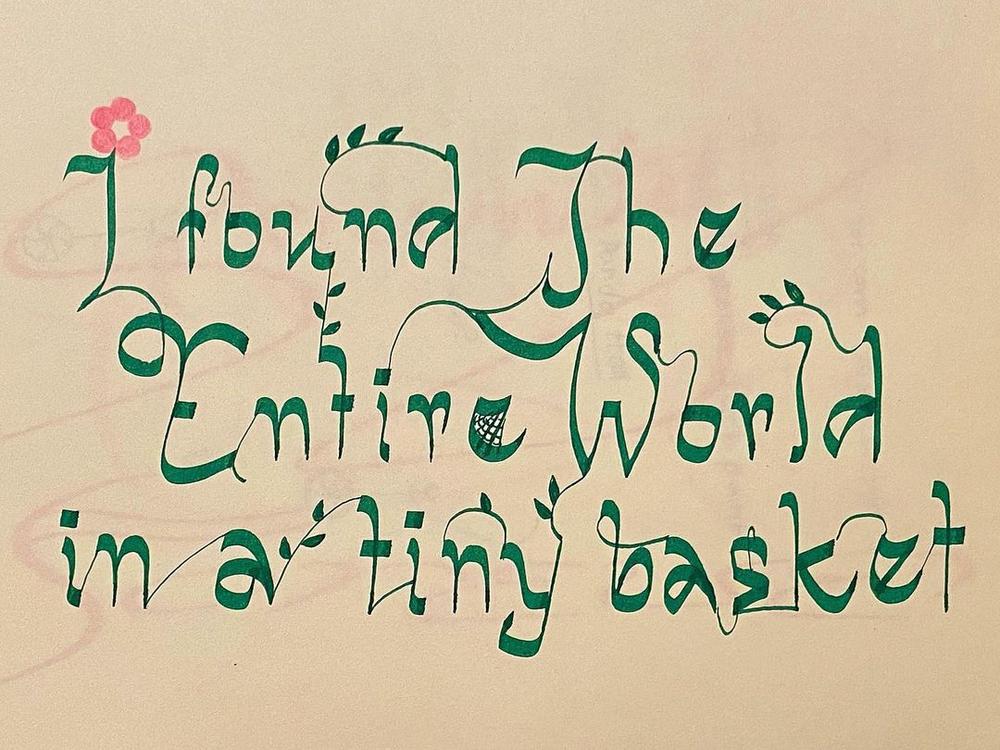 I found The
Entire World
in a tiny basket